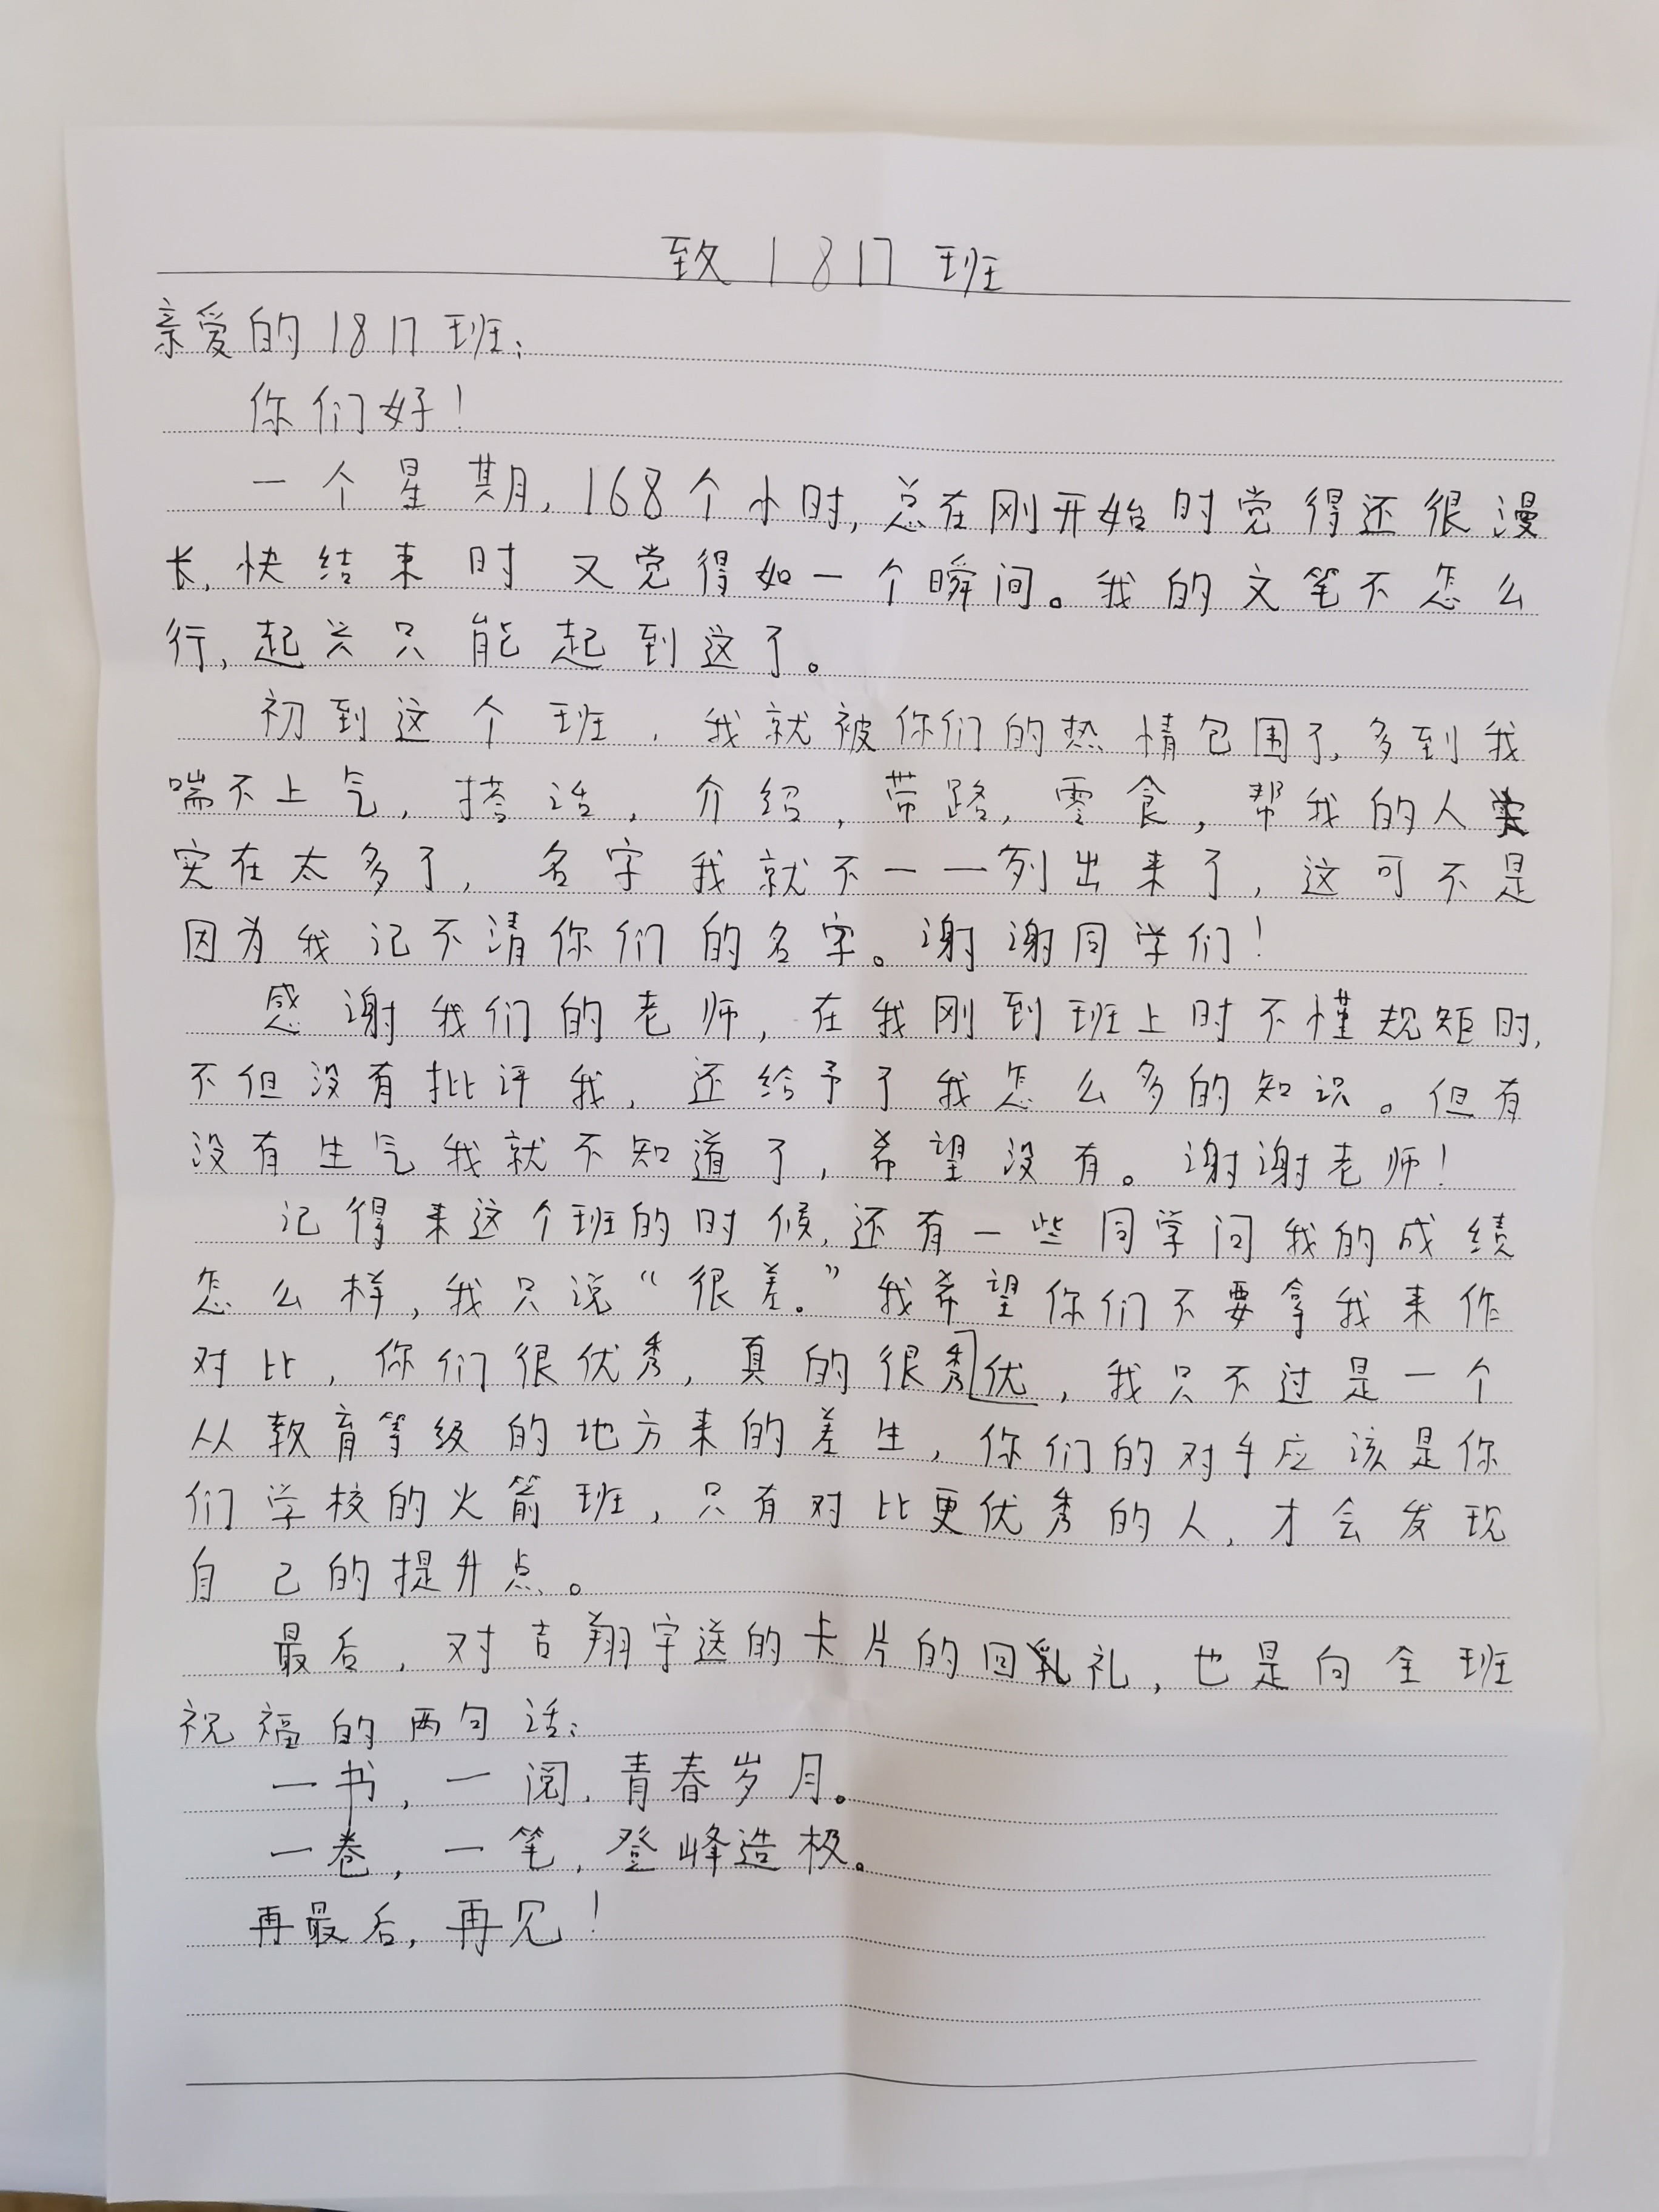 致1817班
亲爱的1817班:
你们好!
一个星期,168个小时,总在刚开始时觉得还很漫
长,快结束时又觉得如一个瞬间。我的文笔不怎么
行,起兴只能起到这了。
初到这个班,我就被你们的热情包围了,多到我
喘不上气,搭话,介绍,带路,零食,帮我的人
实在太多了,名字我就不一一列出来了,这可不是
因为我记不清你们的名字。谢谢同学们!
感谢我们的老师,在我刚到班上时不懂规矩时,
不但没有批评我,还给予了我怎么多的知识。但有
没有生气我就不知道了,希望没有。谢谢老师!
记得来这个班的时候,还有一些同学问我的成绩
怎么样,我只说“很差。”我希望你们不要拿我来作
对比,你们很优秀,真的很秀优,我只不过是一个
从教育等级的地方来的差生,你们的对手应该是你
们学校的火箭班,只有对比更优秀的人,才会发现
自己的提升点。
最后,对吉翔宇送的卡片的回礼,也是向全班
祝福的两句话:
一书,一阅,青春岁月。
一卷,一笔,登峰造极。
再最后,再见!